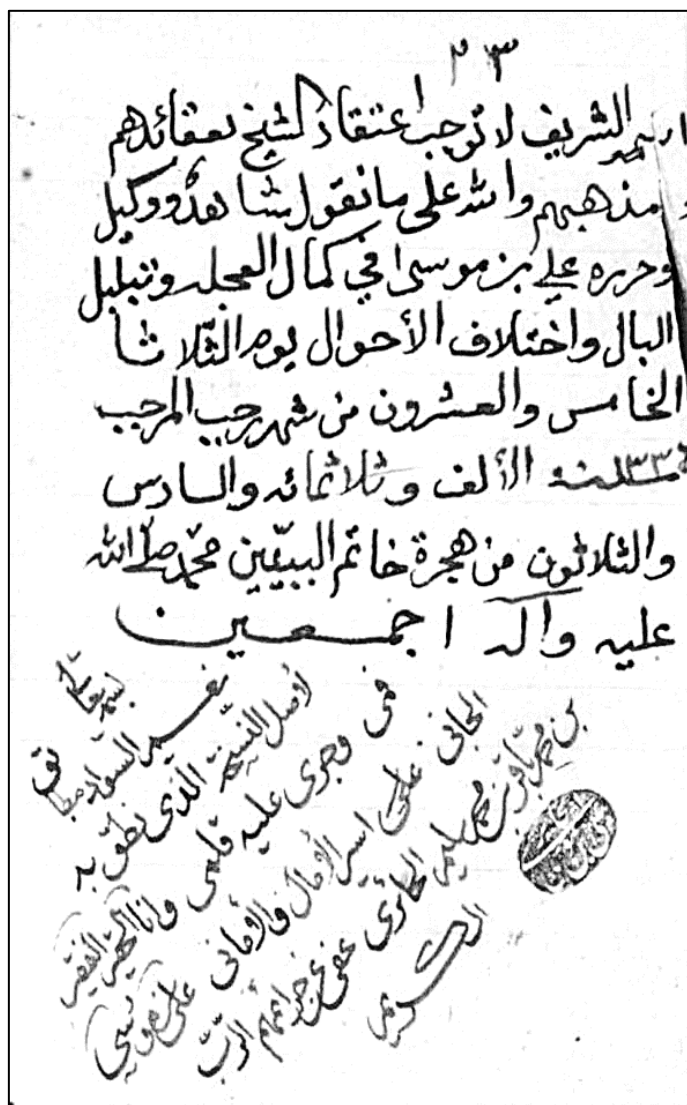 ٢٣
الشريف لا توجب اعتقاد الشيخ بعقائدهم
ومذهبهم والله على ما نقول شاهد ووكيل
وحرره علي بن موسى في كمال العجلة وتبلبل
البال واختلاف الأحوال يوم الثلاثا
الخامس والعشرون من شهر رجب المرجب
الألف وثلاثمائه والسادس
والثلاثون من هجرة خاتم النبيين محمد صلى الله
عليه وآله اجمعين
السواد مطابق
لأصل النسخة الذي نطق به
فمي وجرى عليه قلمي وانا الحقير الفقير
الجاني اسير الآمال والأماني علي بن موسى
بن محمد باقر بن محمد سليم الحائري عفى عن جرائمهم الرب
الكريم